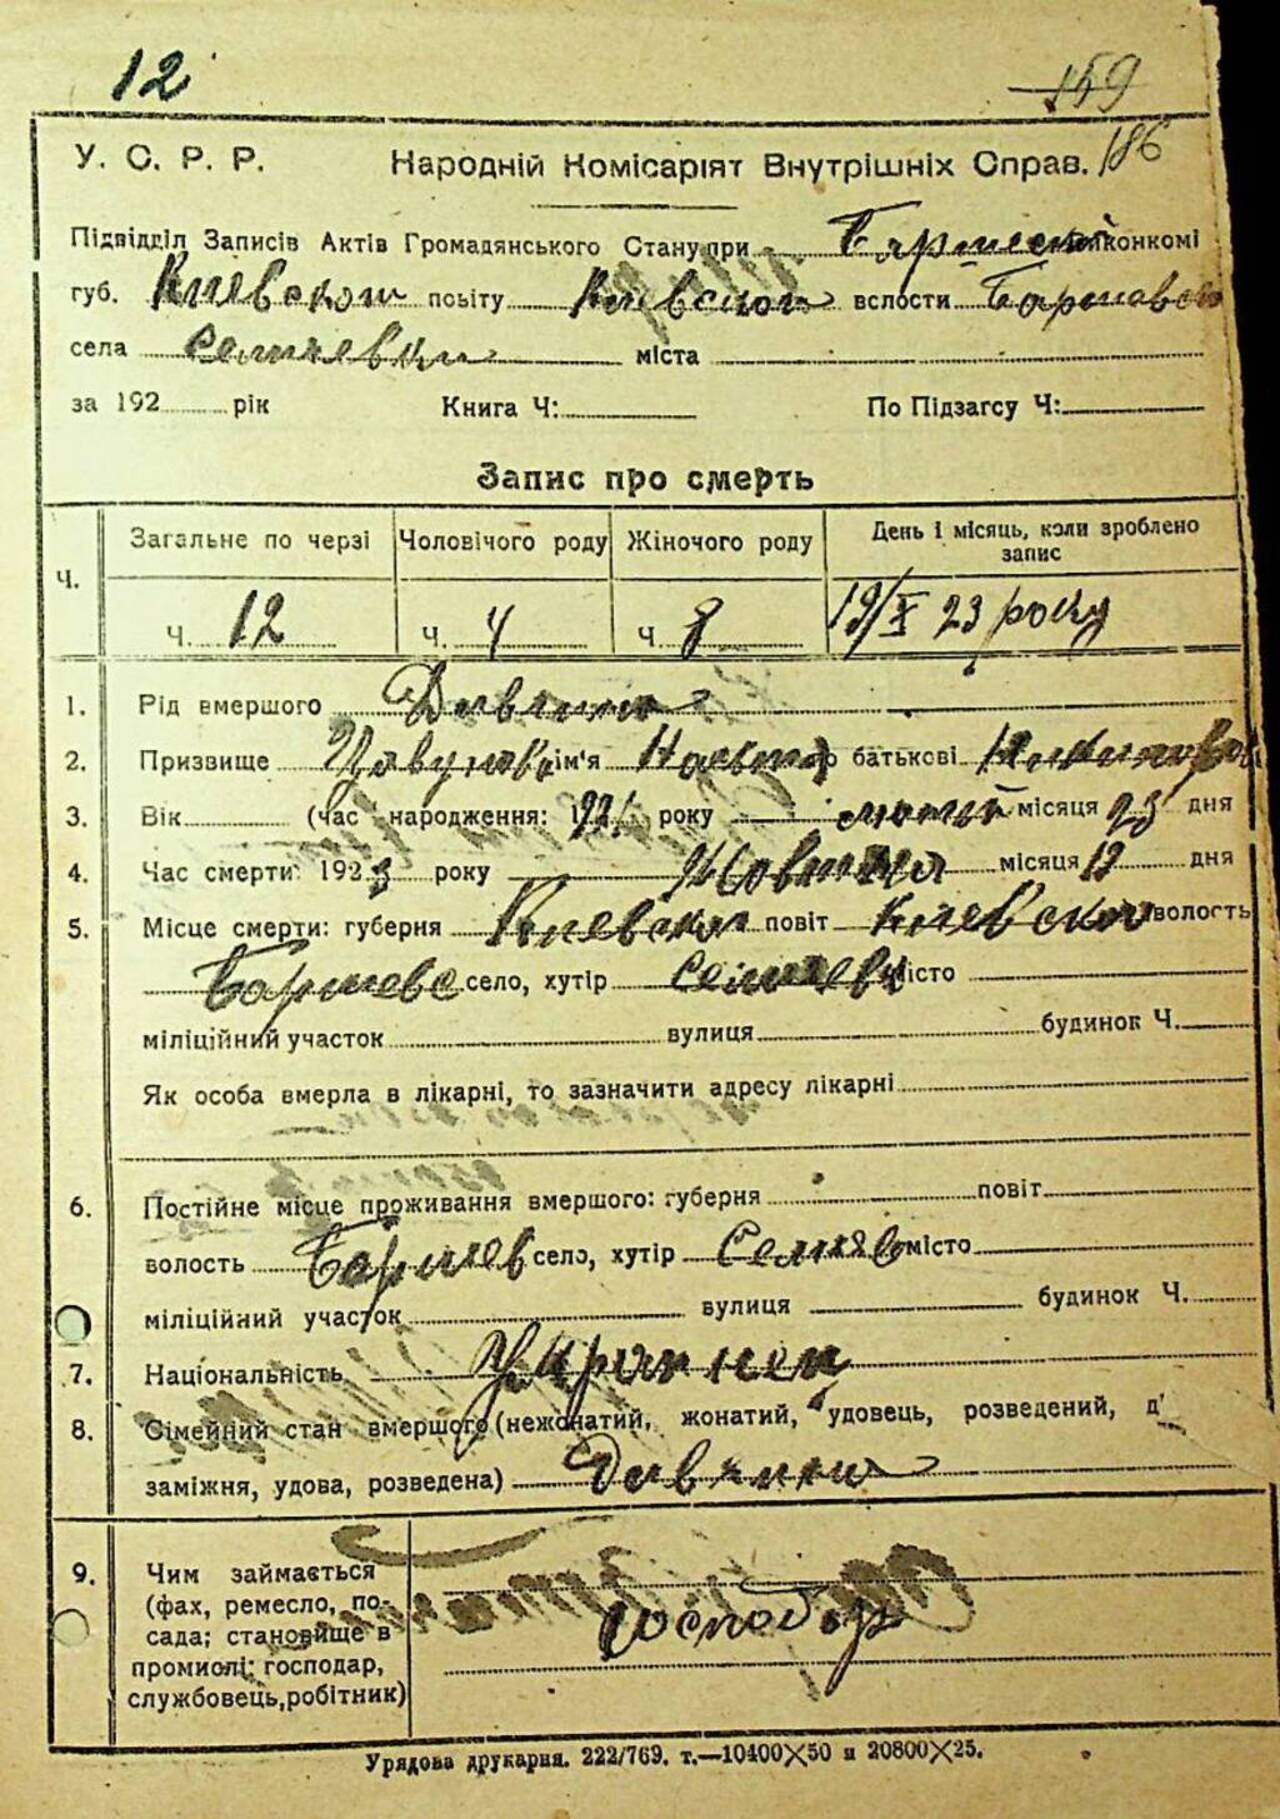 12
159
186
У. С. Р. Р. Народній Комісаріят Внутрішніх Справ.
Підвідділ Записів Актів Громадянського Стану при виконкомі
губ. Киевской повіту Киевской вслости
села міста
за 192 рік Книга Ч: По Підзагсу Ч:
Запис про смерть
Ч. Загальне по черзі Чоловічого роду Жіночого роду День і місяць, коли зроблено запис
Ч. 12 Ч. 4 Ч. 8 19/X 23 року
1. Рід вмершого Дивчина
2. Призвище ім'я по батькові
3. Вік (час народження: 192 року лютий місяця 23 дня
4. Час смерти: 1923 року Жовтня місяця 12 дня
5. Місце смерти: губерня Киевской повіт Киевской волость
село, хутір місто
міліційний участок вулиця будинок Ч.
Як особа вмерла в лікарні, то зазначити адресу лікарні
6. Постійне місце проживання вмершого: губерня повіт
волость село, хутір місто
міліційний участок вулиця будинок Ч.
7. Національність Украинец
8. Сімейний стан вмершого (нежонатий, жонатий, удовець, розведений, д'
заміжня, удова, розведена) Дивчина
9. Чим займається
(фах, ремесло, по-
сада; становище в
промислі: господар,
службовець, робітник)
господар
Урядова друкарня. 222/769. т.—10400×50 и 20800×25.